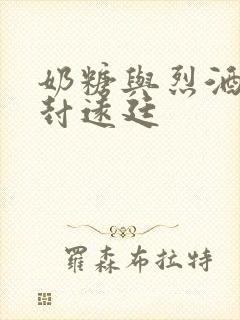 奶糖與烈酒
封遠廷
羅森布拉特